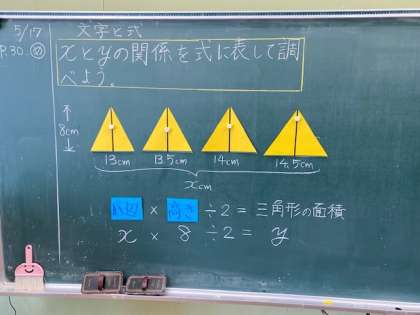 5/17
文字と式
P.30
xとyの関係を式に表して調
べよう。
8cm
13cm 13.5cm 14cm 14.5cm
xcm
底辺 × 高さ ÷2 = 三角形の面積
x × 8 ÷2 = y